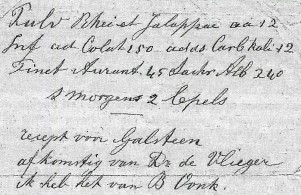 Pulv Rhei et Jalappae aa 12
Inf ad Colat 150 adde Carb Kali 12
Tinct Aurant 45 Sachr Alb 240
s morgens 2 lepels
recept voor Galsteen
afkomstig van Dr de Vlieger
ik heb het van B Vonk.